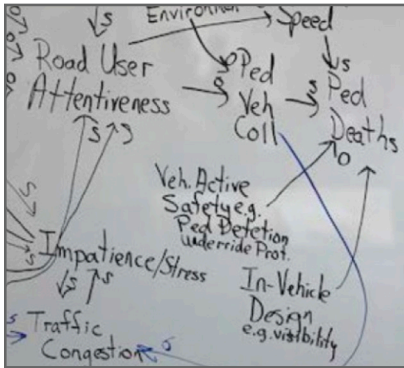 Speed
Road User
Attentiveness
Ped
Veh
Coll
Ped
Deaths
Veh. Active
Safety e.g.
Ped Detetion
Underride Prot.
Impatience/Stress
In-Vehicle
Design
e.g. visibility
Traffic
Congestion